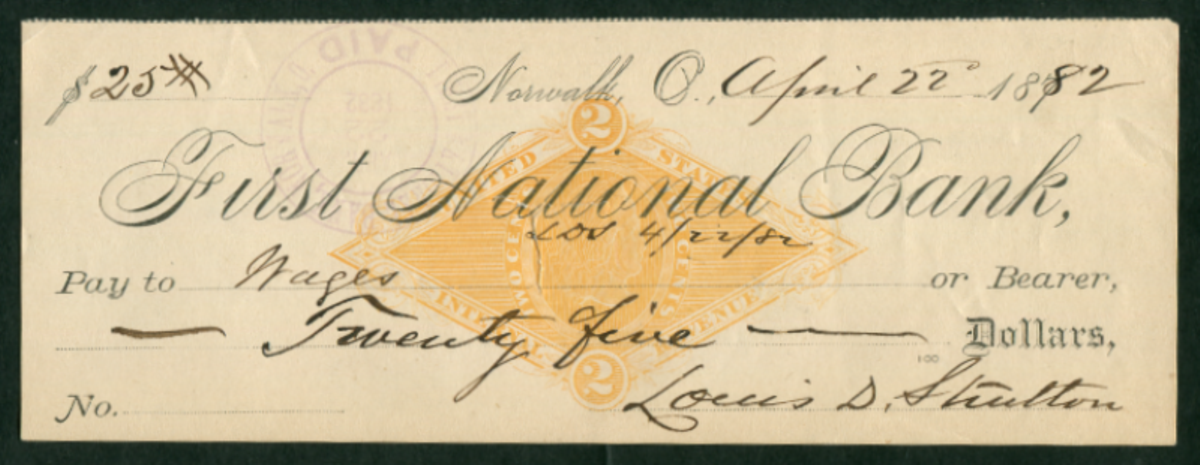 $ 25
Norwalk, O., April 22 1882
First National Bank,
LDS 4/22/82
Pay to Wages or Bearer,
Twenty five Dollars,
100
No.
Louis D. Strutton
PAID
2
UNITED STATES
TWO CENTS
INTERNAL REVENUE
2